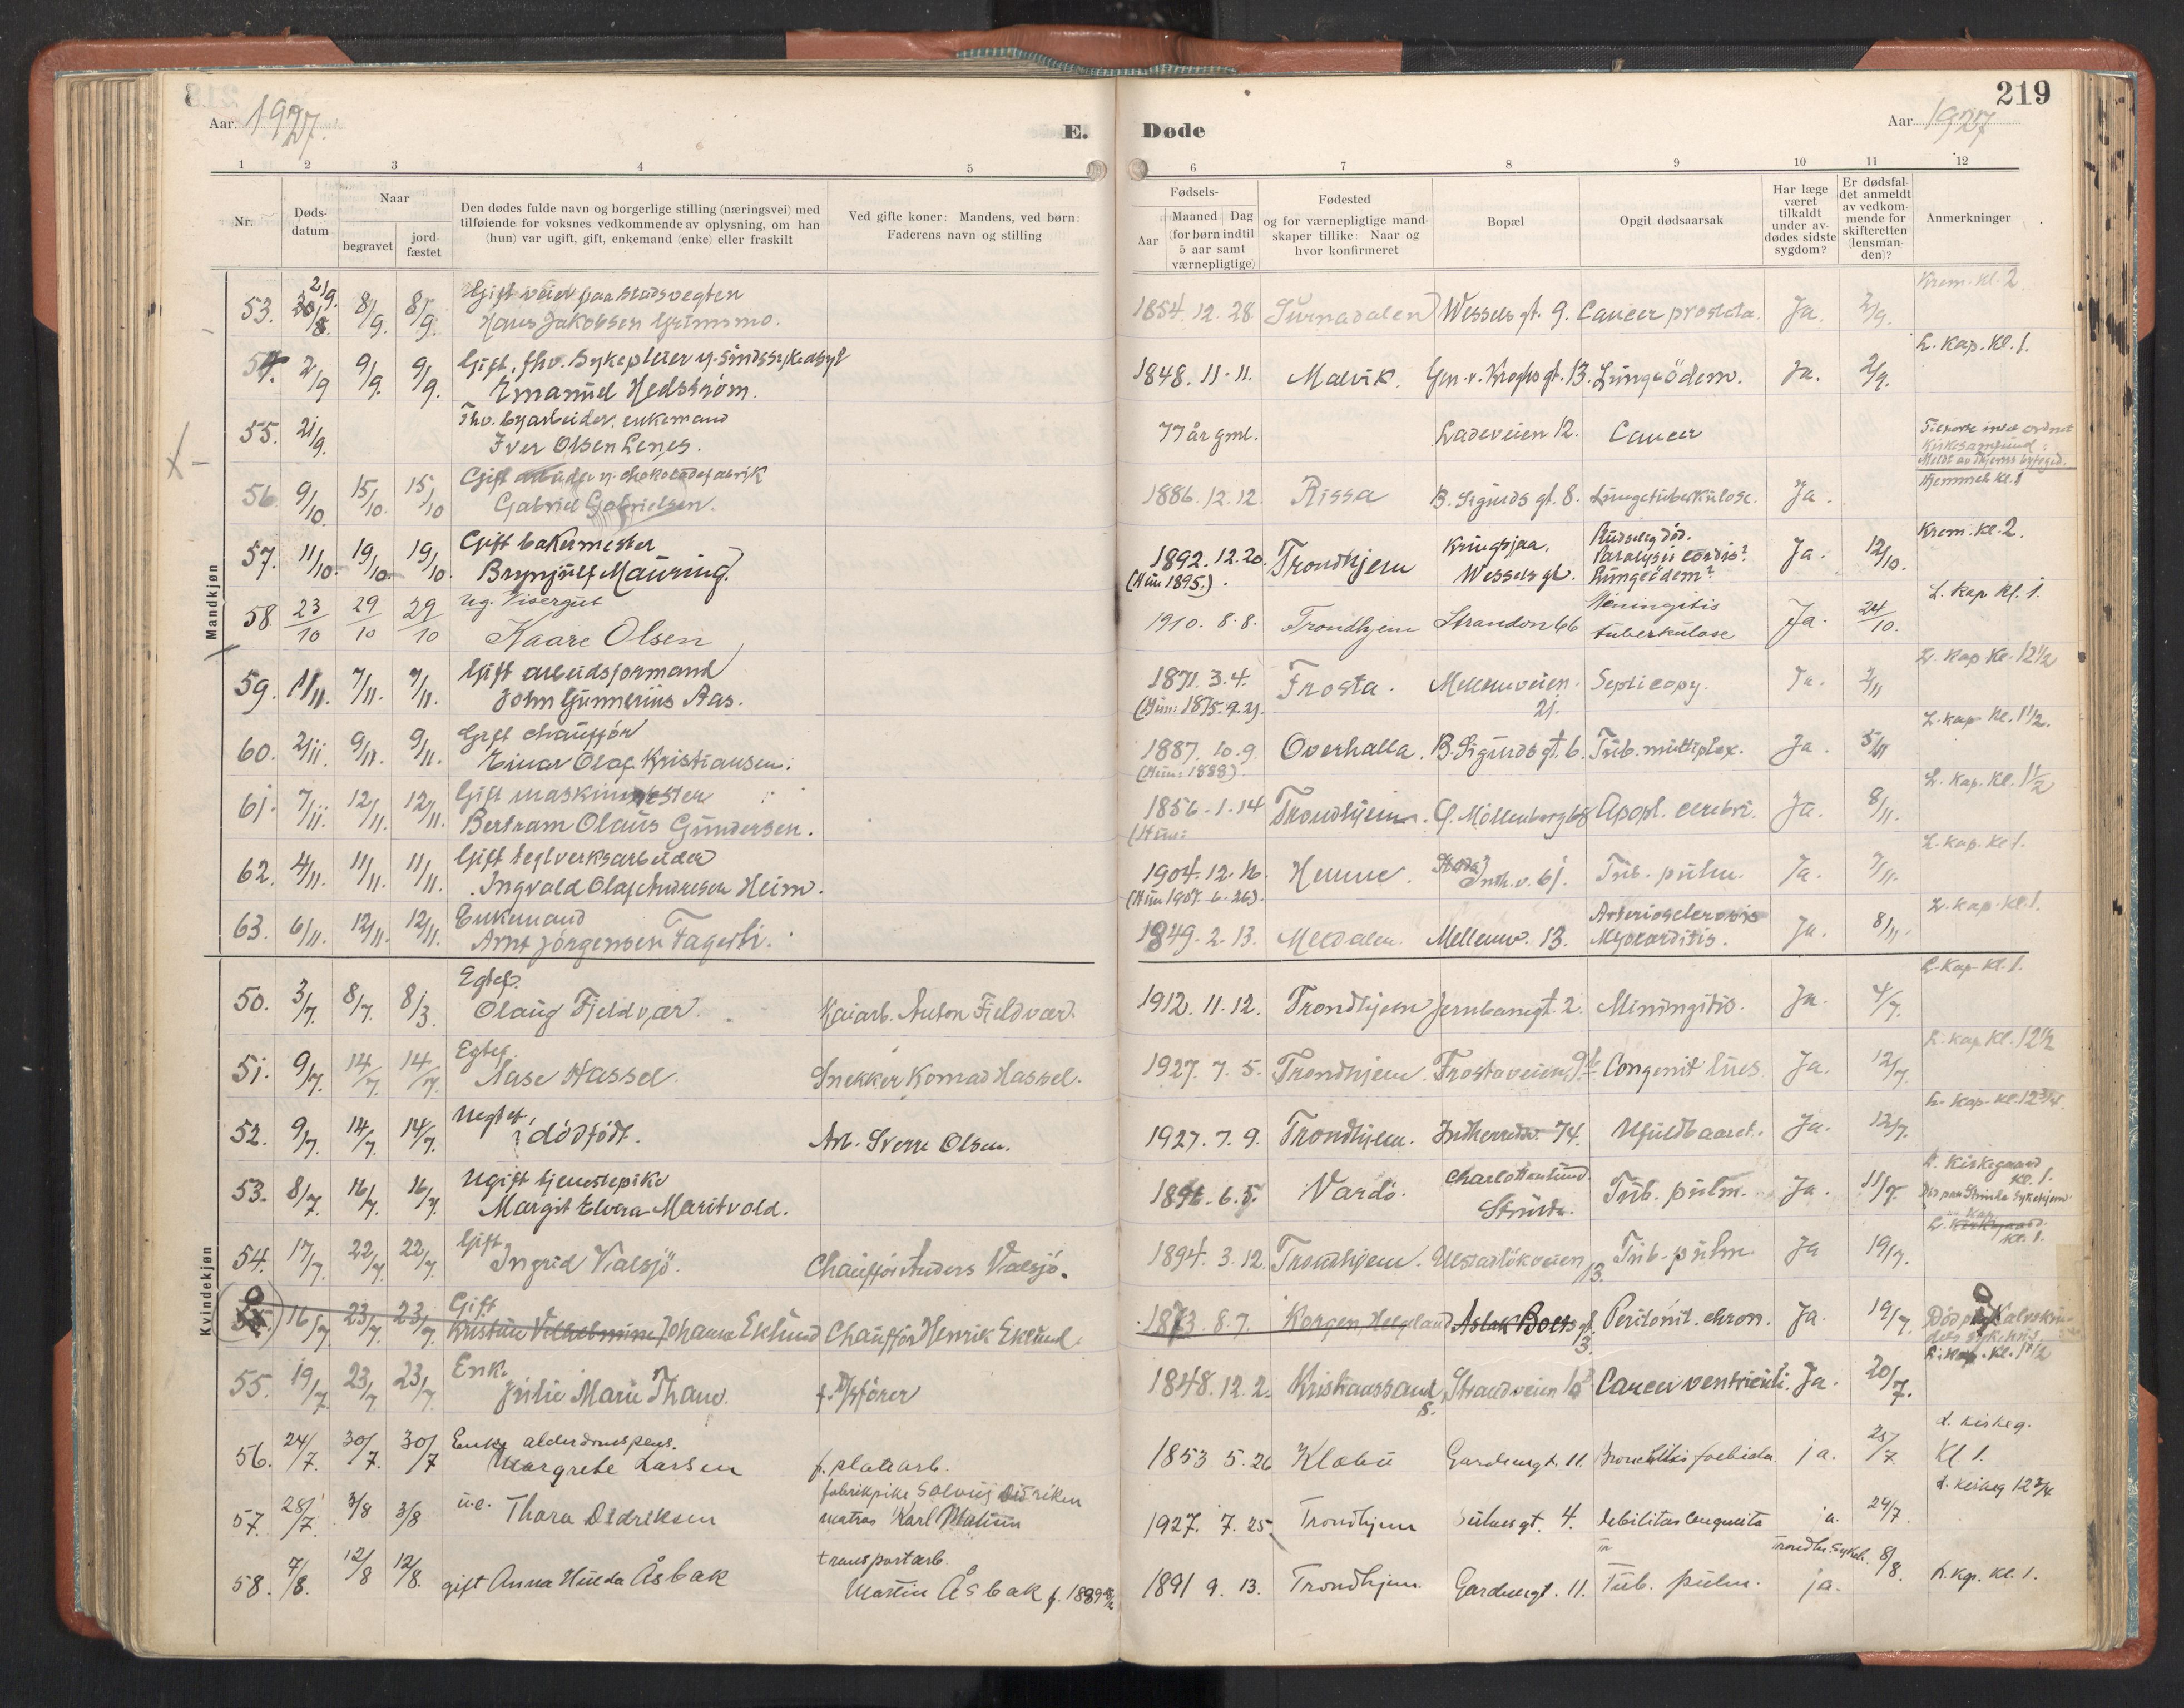 219
Aar 1927.
E. Døde
Aar 1927
1 2 3 4 5 6 7 8 9 10 11 12
Nr.
Døds-
datum
Naar
begravet
jord-
fæstet
Den dødes fulde navn og borgerlige stilling (næringsvei) med
tilføiende for voksnes vedkommende av oplysning, om han
(hun) var ugift, gift, enkemand (enke) eller fraskilt
Ved gifte koner: Mandens, ved børn:
Faderens navn og stilling
Fødsels-
Aar
Maaned Dag
(for børn indtil
5 aar samt
værnepligtige)
Fødested
og for værnepligtige mand-
skaper tillike: Naar og
hvor konfirmeret
Bopæl
Opgit dødsaarsak
Har læge
været
tilkaldt
under av-
dødes sidste
sygdom?
Er dødsfal-
det anmeldt
av vedkom-
mende for
skifteretten
(lensman-
den)?
Anmerkninger
Mandkjøn
53. 2/9. 30/8. 8/9. 8/9. Gift veier paa Stadsvegten
Hans Jakobsen Grimsmo. 1854. 12. 28. Surnadalen Wessels gt. 9. Cancer prostata. Ja. 2/9. Krem. Kl. 2
54. 2/9 9/9. 9/9. Gift, fhv. Sykepleier v. Sindssykeasyl
Emanuel Hedstrøm. 1848. 11. 11. Malvik. Gen. v. Kroghs gt. 13. Lungeödem. Ja. 2/9. L. Kap. Kl. 1.
55. 21/9. Fhv. byarbeider, enkemand
Iver Olsen Lenes. 77 år gml. Ladeveien 12. Cancer Tilhørte intet ordnet
Kirkesamfund.
Meldt av
56. 9/10 15/10. 15/10 Gift arbeider v. chokoladefabrik
Gabriel Gabrielsen. 1886. 12. 12. Rissa B. Sigurds gt. 8. Lungetuberkulose. Ja. Hjemmet kl. 1
57. 11/10. 19/10. 19/10. Gift bakermester
Brynjulf Mauring. 1892. 12. 20. Trondhjem Kringsjaa, Wessels gt. Pludselig död.
Paralysis cordis?
Lungeödem? Ja. 12/10. Krem. Kl. 2.
(Hun 1895.)
58. 23/10 29/10 29/10 Ug. Visergut
Kaare Olsen 1910. 8. 8. Trondhjem Stranden 66 Meningitis
tuberkulose Ja. 24/10. L. Kap Kl. 1.
59. 1/11. 7/11. 7/11. Gift arbeidsformand
John Gunnerius Aas. 1871. 3. 4. Frosta. Mellemveien 21. Ja. 2/11 L. Kap Kl. 12 1/2
(Hun: 1875. 9. 21.
60. 2/11. 9/11. 9/11. Gift chauffør
Einar Olaf Kristiansen. 1887. 10. 9. Overhalla. B. Sigurds gt. 6. Tub. multiplex. Ja. 5/11 L. Kap Kl. 1 1/2.
(Hun: 1888).
61. 7/11. 12/11. 12/11. Gift maskinmester
Bertram Olaus Gundersen. 1856. 1. 14 Trondhjem. Ø. Møllenberg 68 Apopl. cerebri. Ja. 8/11. L. Kap. Kl. 1 1/2
(Hun:
62. 4/11. 11/11. 11/11. Gift teglverksarbeider
Ingvald Olaf Andresen Heim. 1904. 12. 16. Hemne. Inh. v. 61. Tub. pulm. Ja. 7/11. L. Kap. Kl 1.
63. 6/11. 12/11. 12/11. Enkemand
Arnt Jörgensen Fagerli. 1849. 2. 13. Meldalen. Mellemv. 13. Arteriosclerosis
Myocarditis. Ja. 8/11. L. Kap. Kl. 1.
Kvindekjøn
50. 3/7. 8/7. 8/3. Egtef.
Olaug Fjeldvær. Kaiarb. Anton Fjeldvær. 1912. 11. 12. Trondhjem Jernbanegt. 2. Miningitis. Ja. 4/7. L. Kap Kl. 1.
51. 9/7. 14/7 14/7. Egtef.
Aase Hassel. Snekker Konrad Hassel. 1927. 7. 5. Trondhjem. Frostaveien 9 Congenit lues. Ja. 12/7. L. kap Kl. 12 1/2
52. 9/7. 14/7. 14/7. Uegtef.
dödfödt. Arb. Sverre Olsen. 1927. 7. 9. Trondhjem. Indherredsv. 74. Ufuldbaaret. Ja. 12/7. L. Kap Kl. 12 3/4.
53. 8/7. 16/7. 16/7. Ugift tjenestepike
Margit Elvira Maritvold. 1896. 6. 5. Vardö. Charlottenlund
Strinda. Tub. pulm. Ja. 11/7. L. Kirkegaard
kl. 1.
Död paa Strinda Sykehjem
54. 17/7. 22/7. 22/7. Gift
Ingrid Valsjö. Chauffør Anders Valsjö. 1894. 3. 12. Trondhjem. 13. Tub. pulm. Ja 19/7. L. Kap. Kirkegaard kl. 1.
55. 16/7 23/7. 23/7. Gift
Kristine Vilhelmine Johanne Eklund Chauffør Henrik Eklund. 1873. 8. 7. Korgen, Helgeland Aslak Bolts gt. 3. Peritonit. chron. Ja. 19/7. Död paa Kalvskin-
dets sykehus
55. 19/7. 23/7 23/7. Enke.
Julie Marie Thane. 1848. 12. 2. Kristianssand S. Strandveien Cancer ventriculi. Ja. 20/7. L. Kap. Kl. 1 1/2
56. 24/7. 30/7. 30/7 Enke alderdomspens.
Margrete Larsen f. platearb. 1853 5. 26 Klæbu Gardemgt. 11. Bronchitis foetida ja. 25/7 L. kirkeg.
Kl 1.
57. 28/7. 3/8 3/8 u.e. Thora Didriksen fabrikpike Solveig Didriksen
matros Karl 1927. 7. 25 Trondhjem gt. 4. debilitas congenita ja. 29/7. L. Kirkeg 12 3/4
58. 7/8. 12/8 12/8. gift Anna Hulda Åsbak transportarb.
Martin Åsbak f. 1889 1891 9. 13. Trondhjem Gardemgt. 11. Tub. pulm. Trondhj. Sykeh. ja. 8/8. L. Kp. Kl. 1.